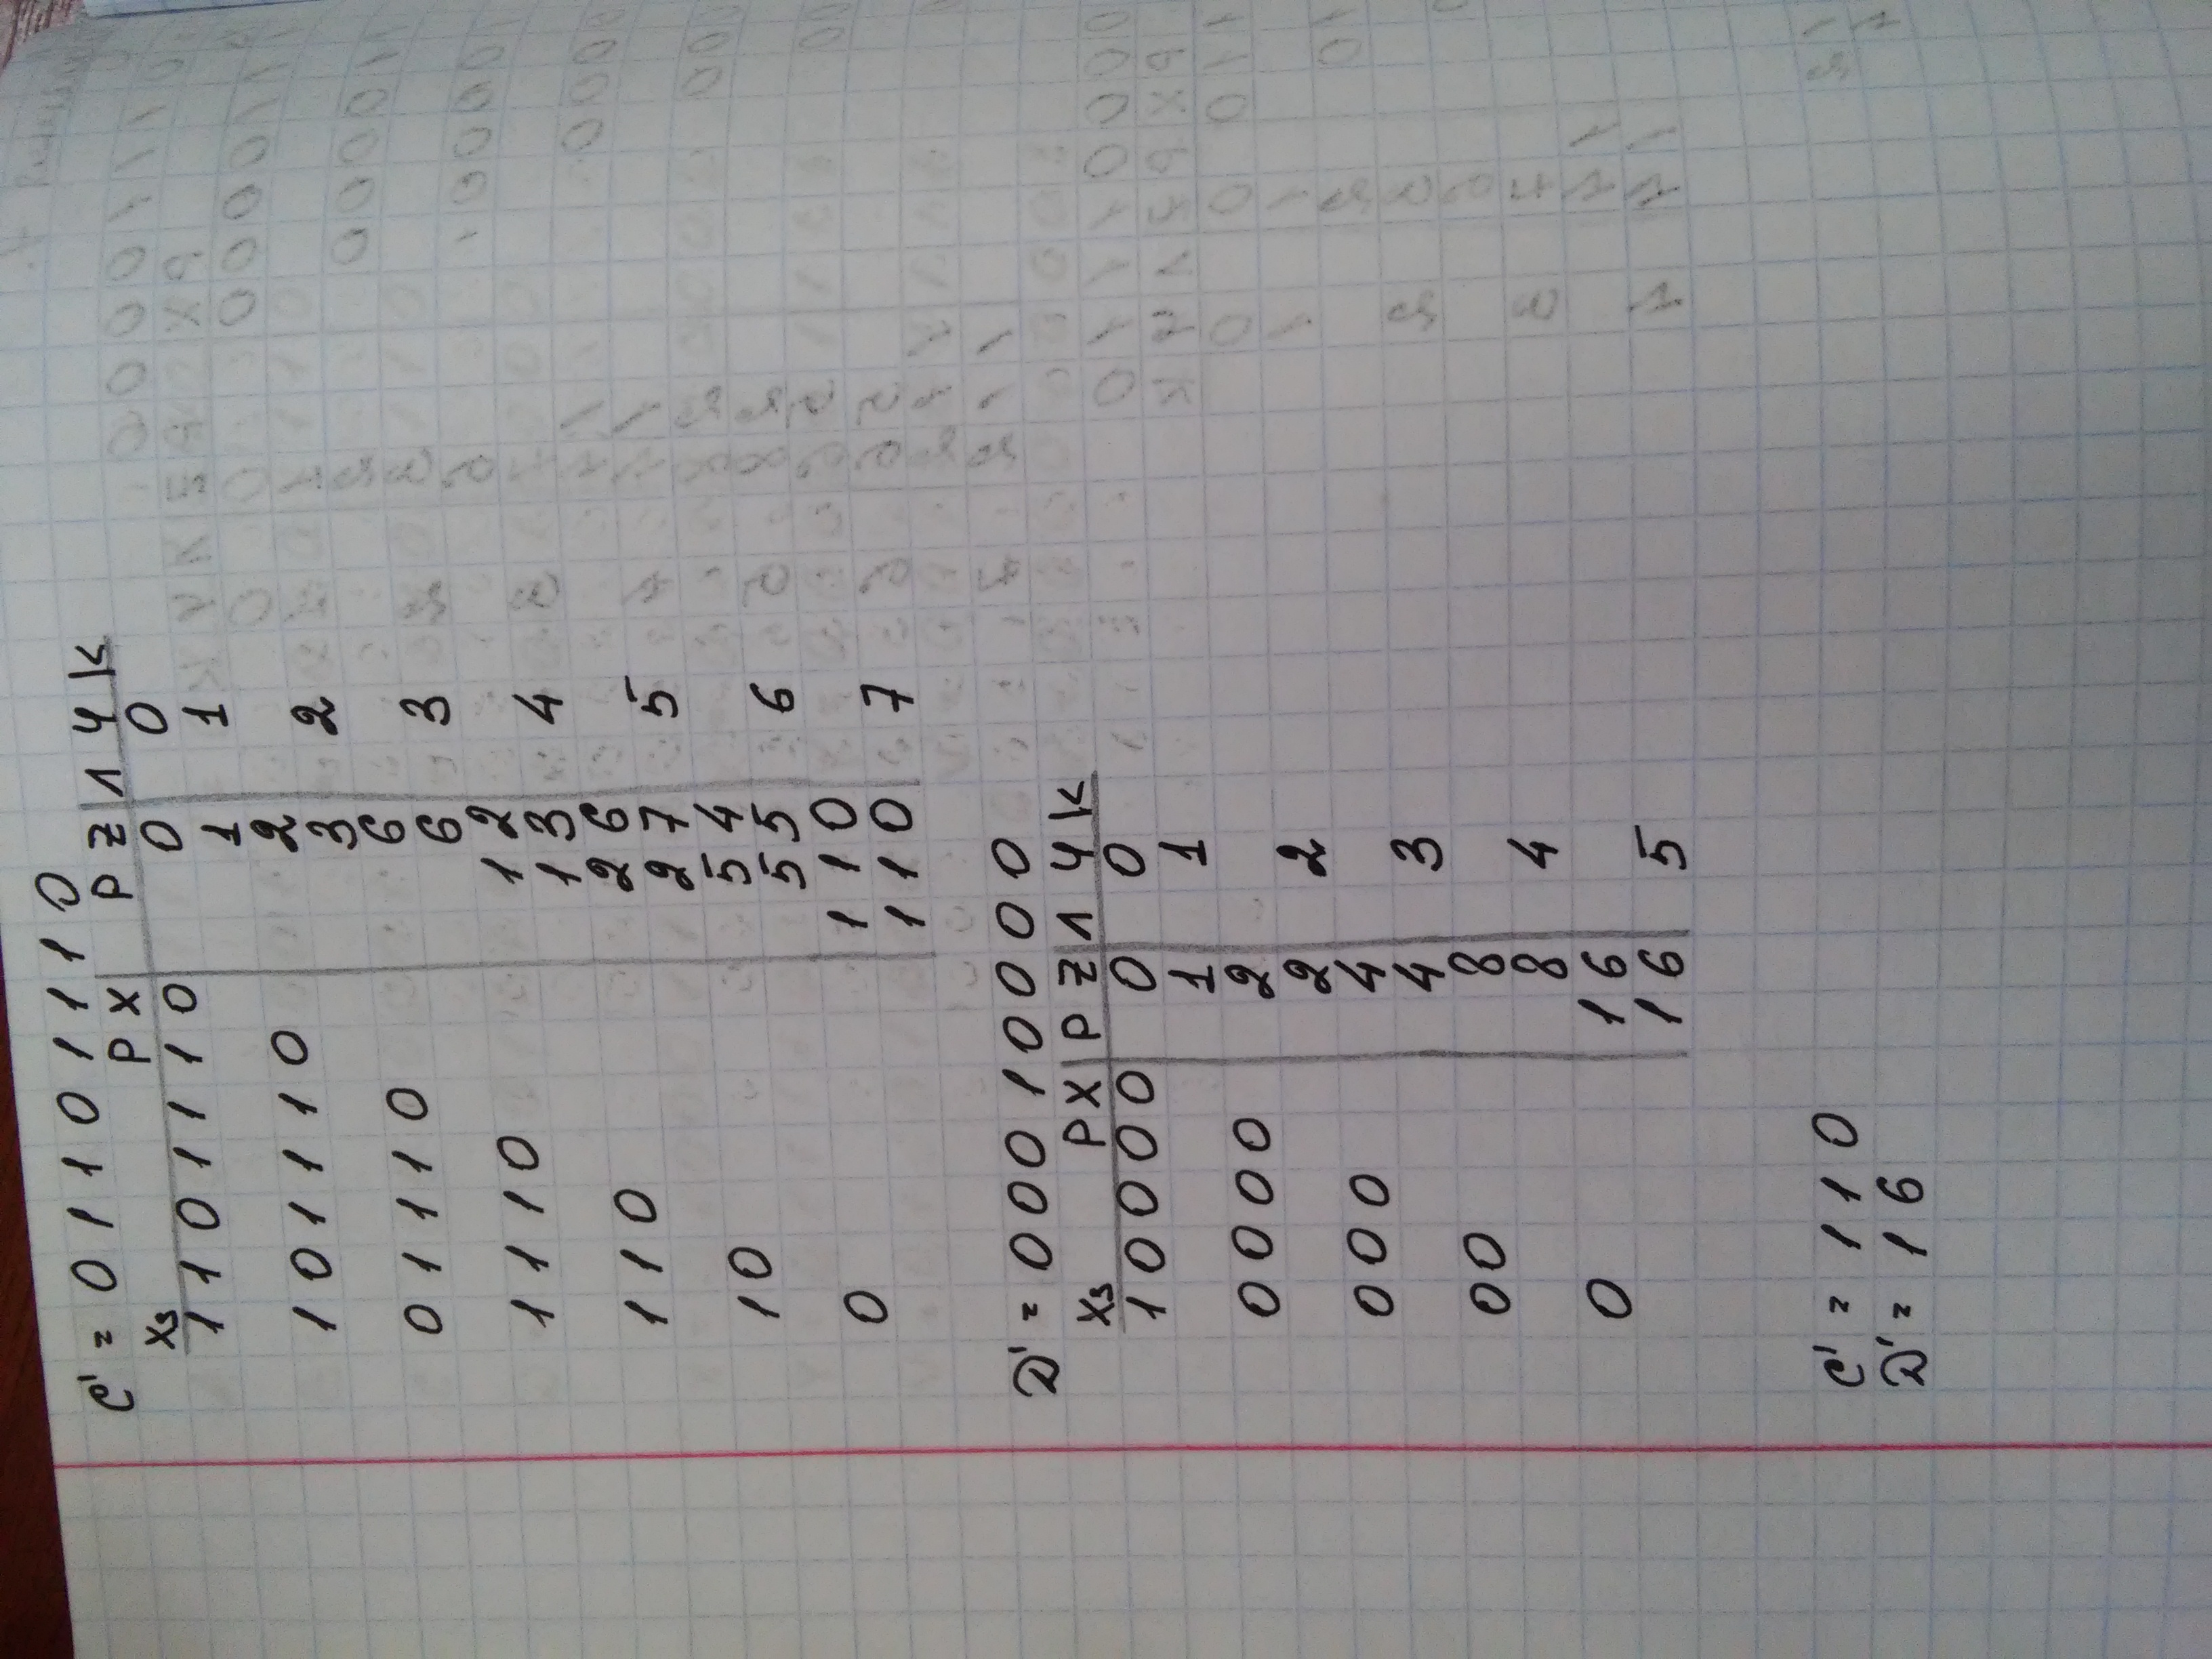 C' = 01101110
X₃ PX PZ 1 ЧK
1101110 0 0
1 1
101110 2
3 2
01110 6
6 3
1110 12
13 4
110 26
27 5
10 54
55 6
0 110
110 7
D' = 00010000
X₃ PX PZ 1 ЧK
10000 0 0
1 1
0000 2
2 2
000 4
4 3
00 8
8 4
0 16
16 5
C' = 110
D' = 16